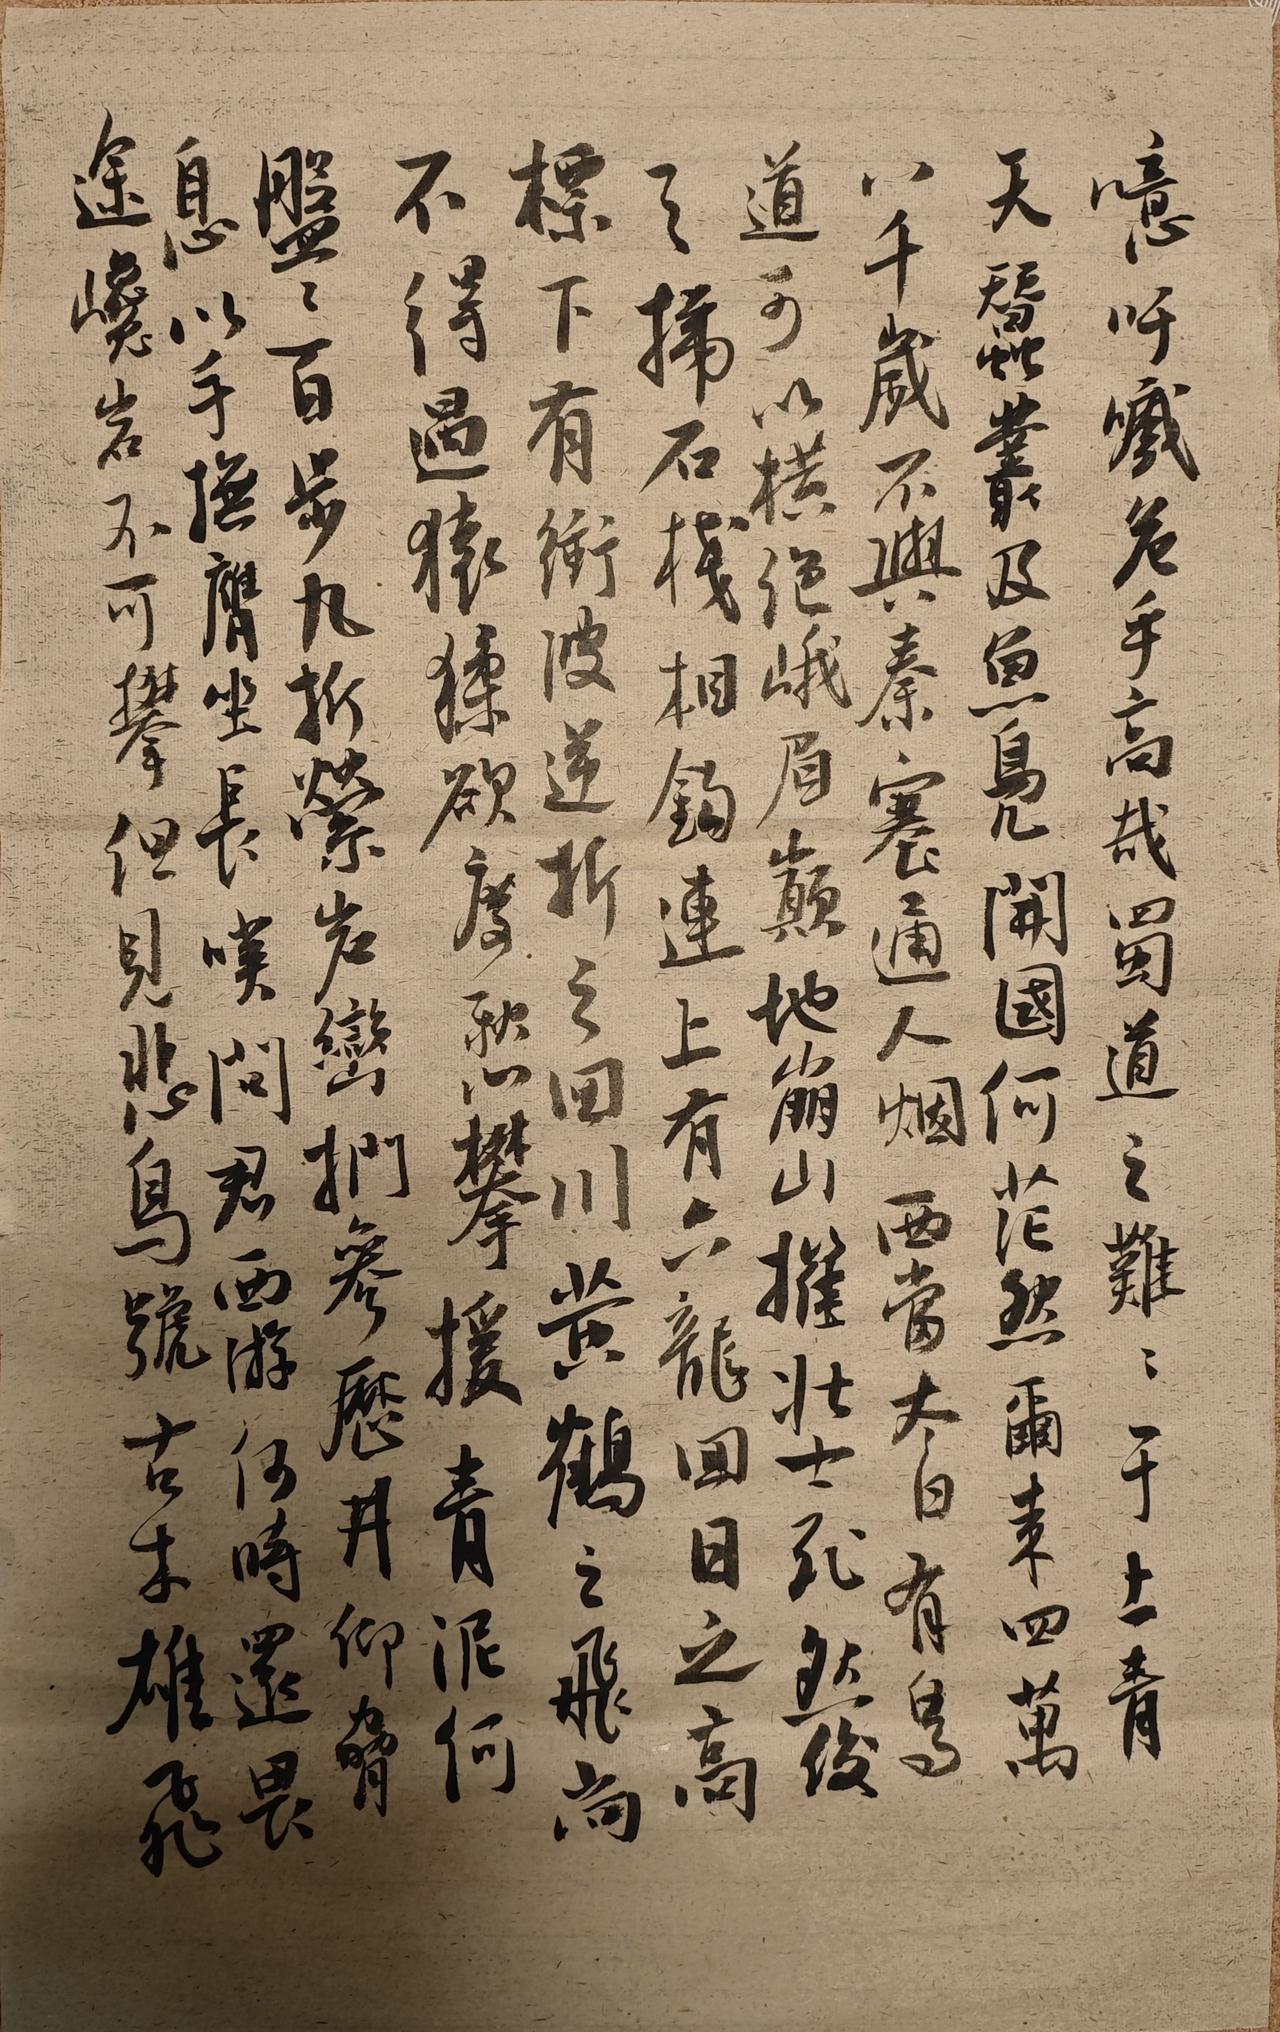 噫吁嚱危乎高哉蜀道之難〻于上青
天蠶叢及魚鳧開國何茫然爾来四萬
八千歲不與秦塞通人烟西當太白有鳥
道可以橫絕峨眉巔地崩山摧壯士死然後
天梯石棧相鈎連上有六龍回日之高
標下有衝波逆折之回川黃鶴之飛尚
不得過猿猱欲度愁攀援青泥何
盤〻百步九折縈岩巒捫參歷井仰脅
息以手撫膺坐長嘆問君西游何時還畏
途巉岩不可攀但見悲鳥號古木雄飛